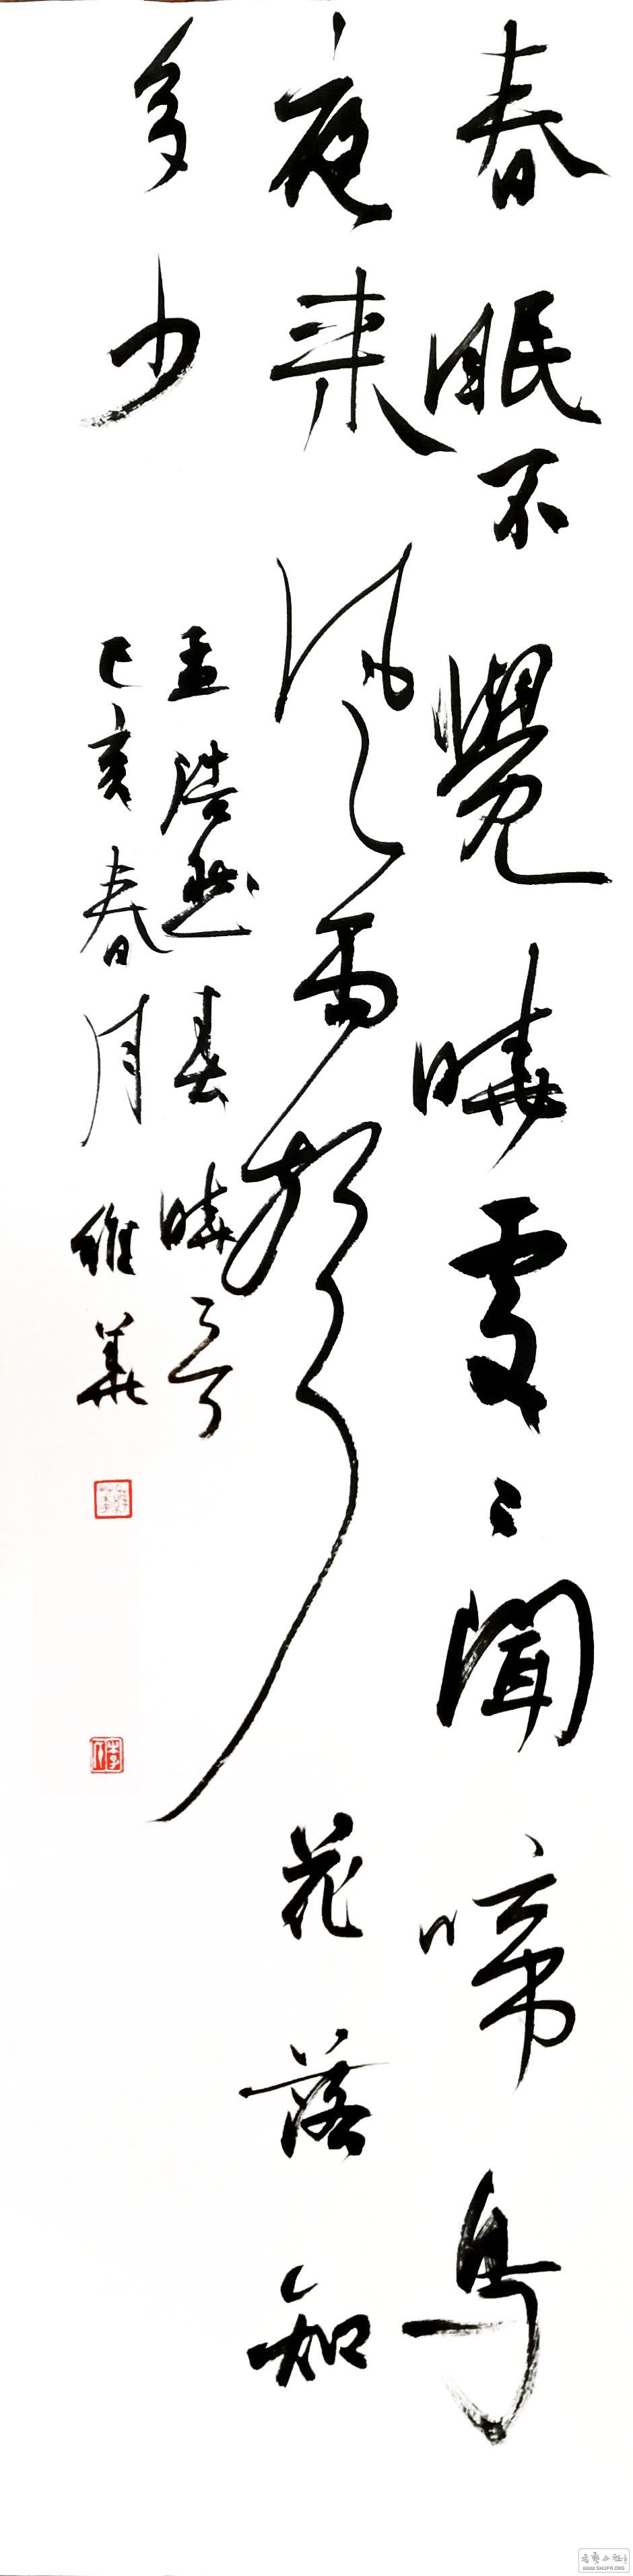 春眠不覺曉處々聞啼鳥
夜來風雨聲花落知
多少
孟浩然春曉章
己亥春月維華
WWW.SHUFR.ORG